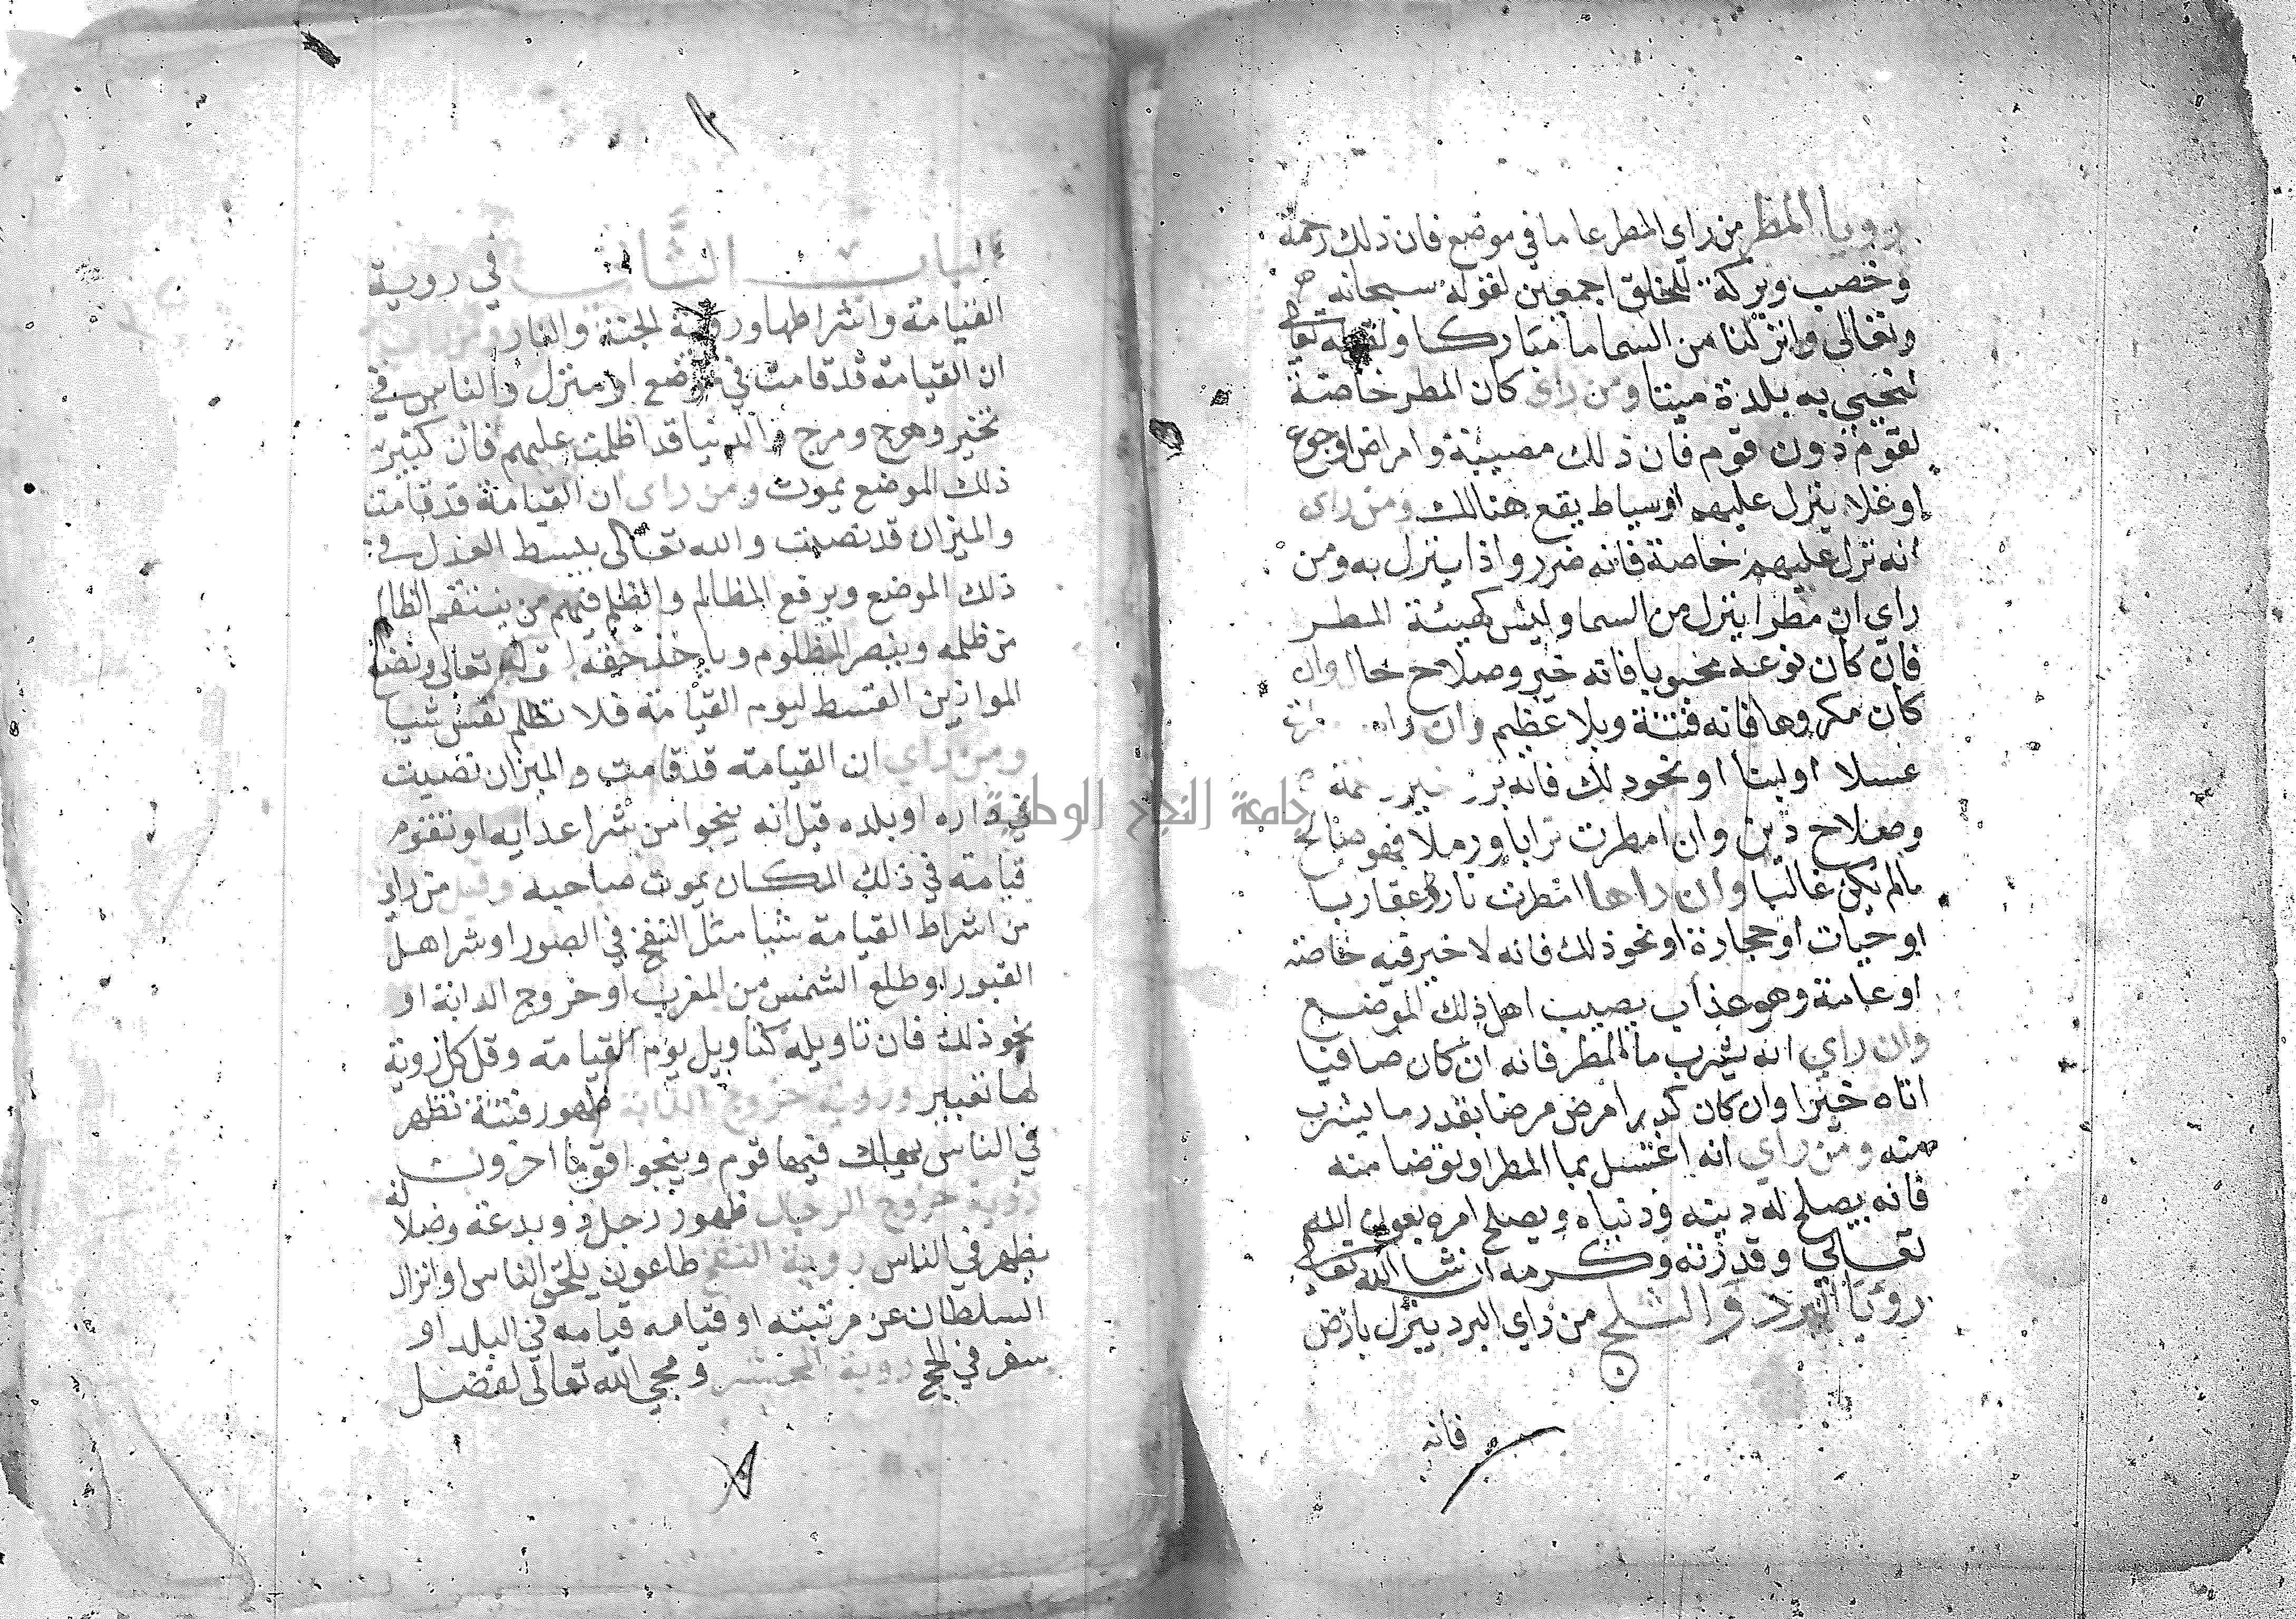 رويا المطر من راي المطر عاما في موضع فان ذلك رحمة
وخصب وبركة للخلق اجمعين لقوله سبحانه
وتعالى وانزلنا من السما ما مباركا ولقوله تعالى
لنحيي به بلدة ميتا ومن راى كان المطر خاصة
لقوم دون قوم فان ذلك مصيبة وامراض اوجوع
اوغلا ينزل عليهم اوسياط يقع هنالك ومن راى
انه نزل عليهم خاصة فانه ضرر واذا ينزل به ومن
راي ان مطرا ينزل من السما وليس كهيئة المطر
فان كان نوعه محبوبا فانه خير وصلاح حال وان
كان مكروها فانه فتنة وبلا عظيم وان راه
عسلا اولبنا اونحوذلك فانه
وصلاح دين وان امطرت ترابا ورملا فهو صالح
مالم يكن غالبا وان راها امطرت نارا وعقارب
اوحيات اوحجارة اونحوذلك فانه لا خير فيه خاصة
اوعامة وهوعذاب يصيب اهل ذلك الموضع
وان راي انه يشرب ما المطر فانه ان كان صافيا
اتاه خيرا وان كان كدرا مرض مرضا بقدر ما يشرب
منه ومن راي انه اغتسل بما المطر اوتوضا منه
فانه يصلح له دينه ودنياه ويصلح امره بعون الله
تعالي وقدرته وكرمه ان شا الله تعالى
رؤيا البرد والثلج من راي البرد ينزل بارض
فانه
جامعة النجاح الوطنية
الباب الثاني في روية
القيامة واشراطها وروية الجنة والنار ومن راى
ان القيامة قد قامت في موضع اومنزل والناس في
تخير وهرج ومرج والدنيا قد اظلمت عليهم فان كثير
ذلك الموضع يموت ومن راى ان القيامة قد قامت
والميزان قد نصبت والله تعالى يبسط العدل في
ذلك الموضع ويرفع المظالم والظلم فيهم من ينتقم الظالم
من ظلمه وينصر المظلوم وياخذ حقه لقوله تعالى ونضع
الموازين القسط ليوم القيامة فلا تظلم نفس شيا
ومن راي ان القيامة قد قامت والميزان نصبت
في داره اوبلده قبل انه ينجوا من شر اعدايه اوتقوم
قيامة في ذلك المكان يموت صاحبه وقيل من راي
من اشراط القيامة شيا مثل النفخ في الصور اونشر اهل
القبور اوطلع الشمس من المغرب اوخروج الدابة او
نحوذلك فان تاويله كتاويل يوم القيامة وقل كل روية
لها تعبير وروية خروج الدابة ظهور فتنة تظهر
في الناس يهلك فيها قوم وينجوا قوما اخرون
روية خروج الدجال ظهور رجل ذوبدعة وضلالة
يظهر في الناس روية النفخ طاعون يلحق الناس اوانزال
السلطان عن مرتبته اوقيامه قيامه في البلد او
سفر في الحج روية المحشر ومجي الله تعالى لفصل